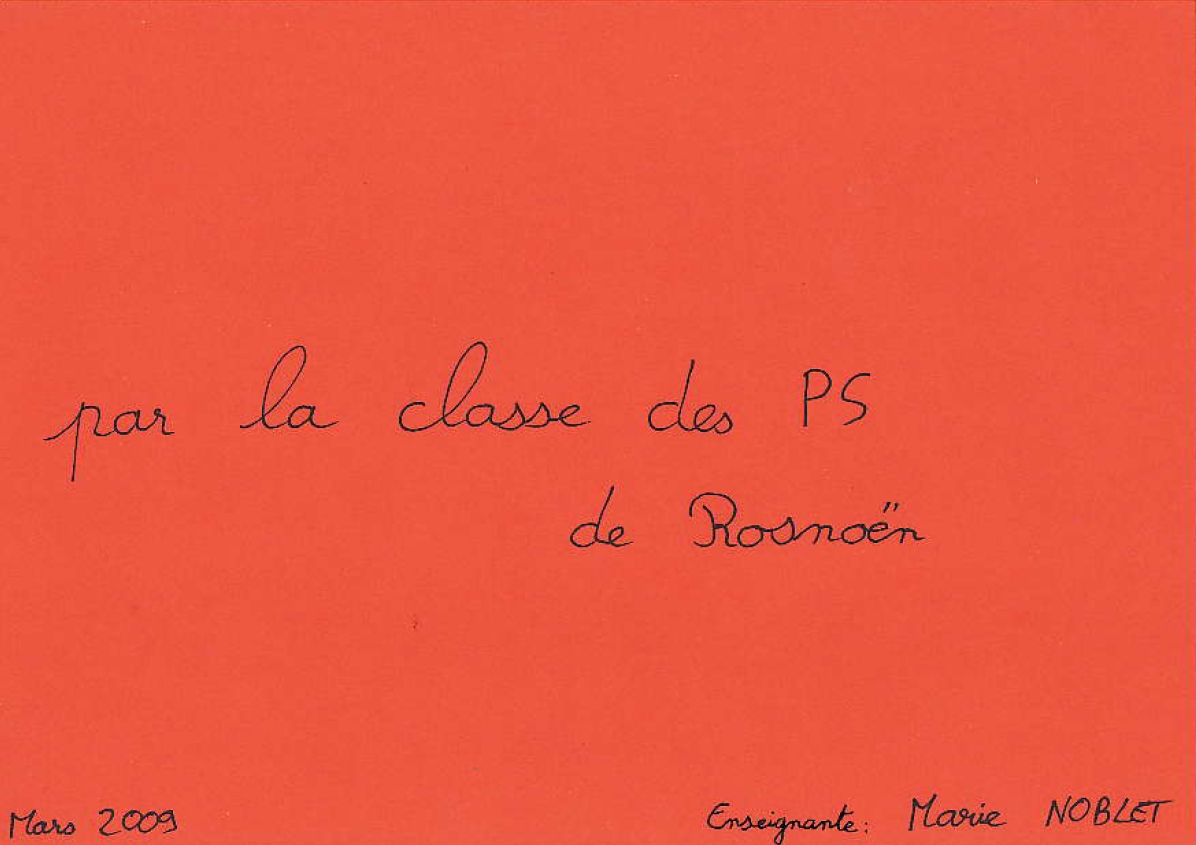 par la classe des PS
de Rosnoën
Mars 2009
Enseignante: Marie NOBLET